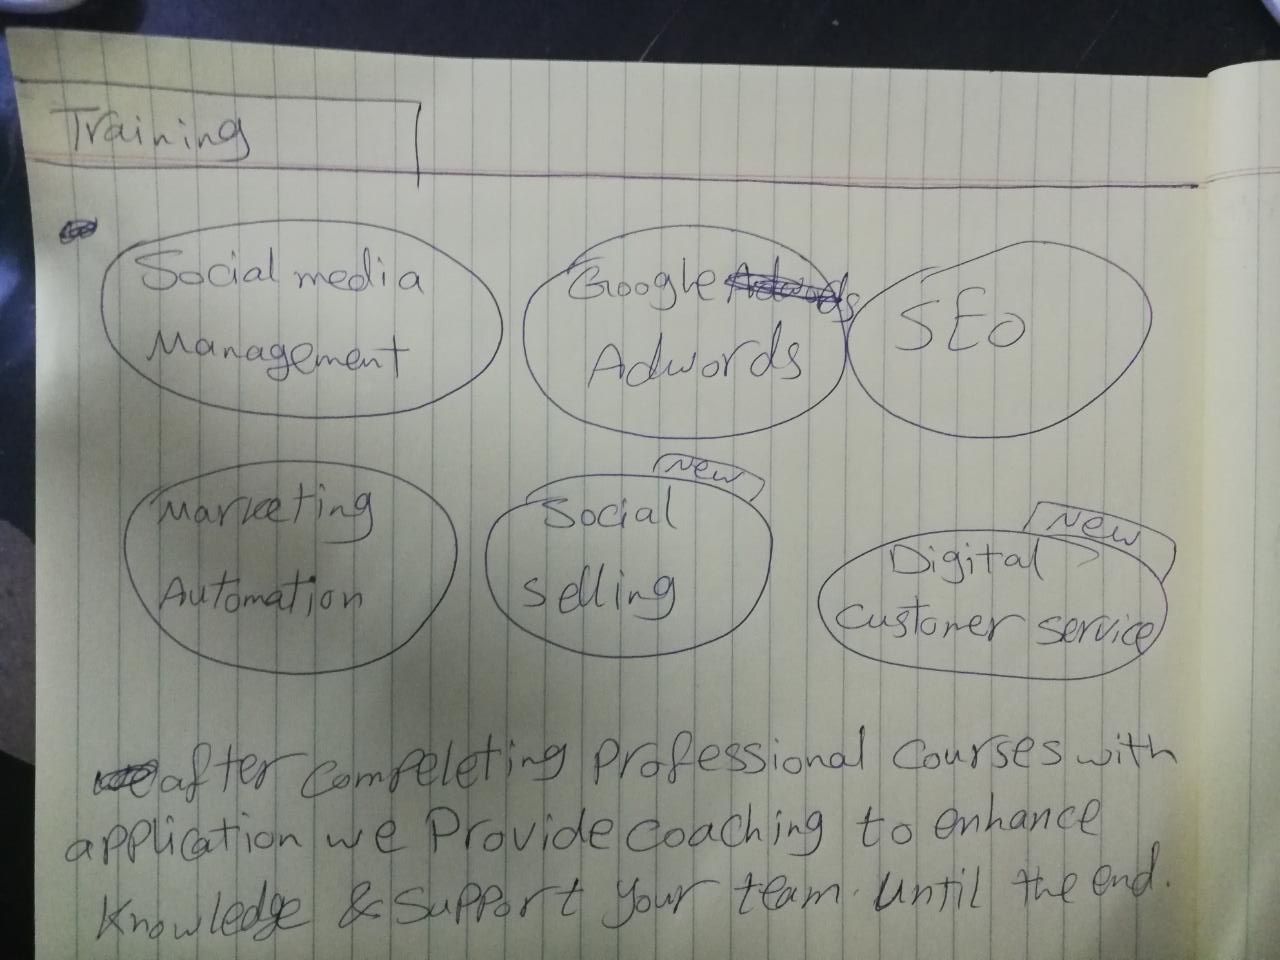 Training
Social media
Management
Google
Adwords
SEO
Marketing
Automation
New
Social
selling
New
Digital
Customer service
after compeleting professional courses with
application we Provide coaching to enhance
Knowledge & Support your team. Until the end.